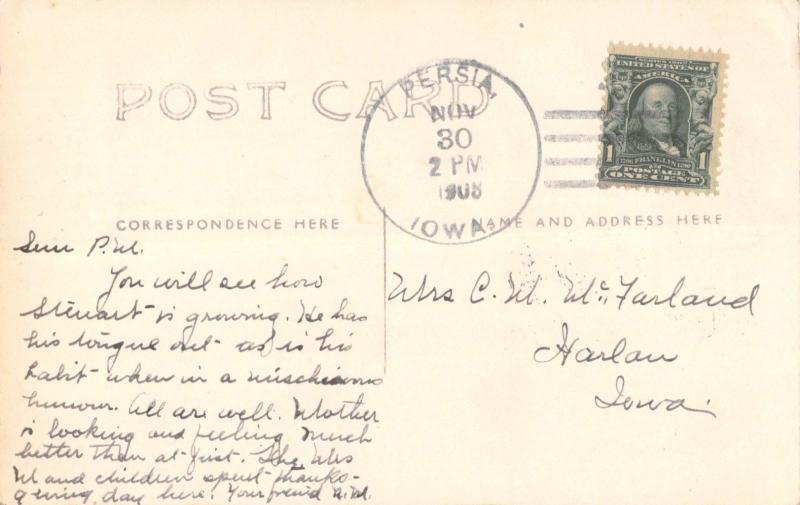 POST CARD
PERSIA,
NOV
30
2 PM
1908
IOWA.
SERIES 1902
UNITED STATES OF
AMERICA
1 1706 FRANKLIN 1790 1
POSTAGE
ONE CENT
CORRESPONDENCE HERE
NAME AND ADDRESS HERE
P.M.
You will see how
Stewart is growing. He has
his tongue out as is his
habit when in a mischievous
humour. All are well. Mother
is looking and feeling much
better than at first. The Mrs
M and children spent thanks-
giving day here. Your friend
Mrs C. M. McFarland
Harlan
Iowa.